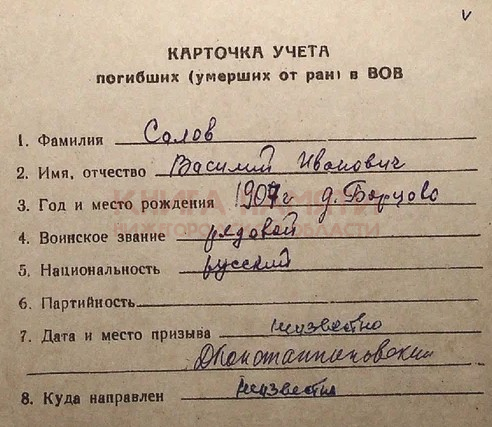 КАРТОЧКА УЧЕТА
погибших (умерших от ран) в ВОВ
1. Фамилия Салов
2. Имя, отчество Василий Иванович
3. Год и место рождения 1907 г д. Борцово
4. Воинское звание рядовой
5. Национальность русский
6. Партийность
7. Дата и место призыва неизвестно
Д-Константиновский
8. Куда направлен неизвестно
КНИГА ПАМЯТИ
НИЖЕГОРОДСКОЙ ОБЛАСТИ